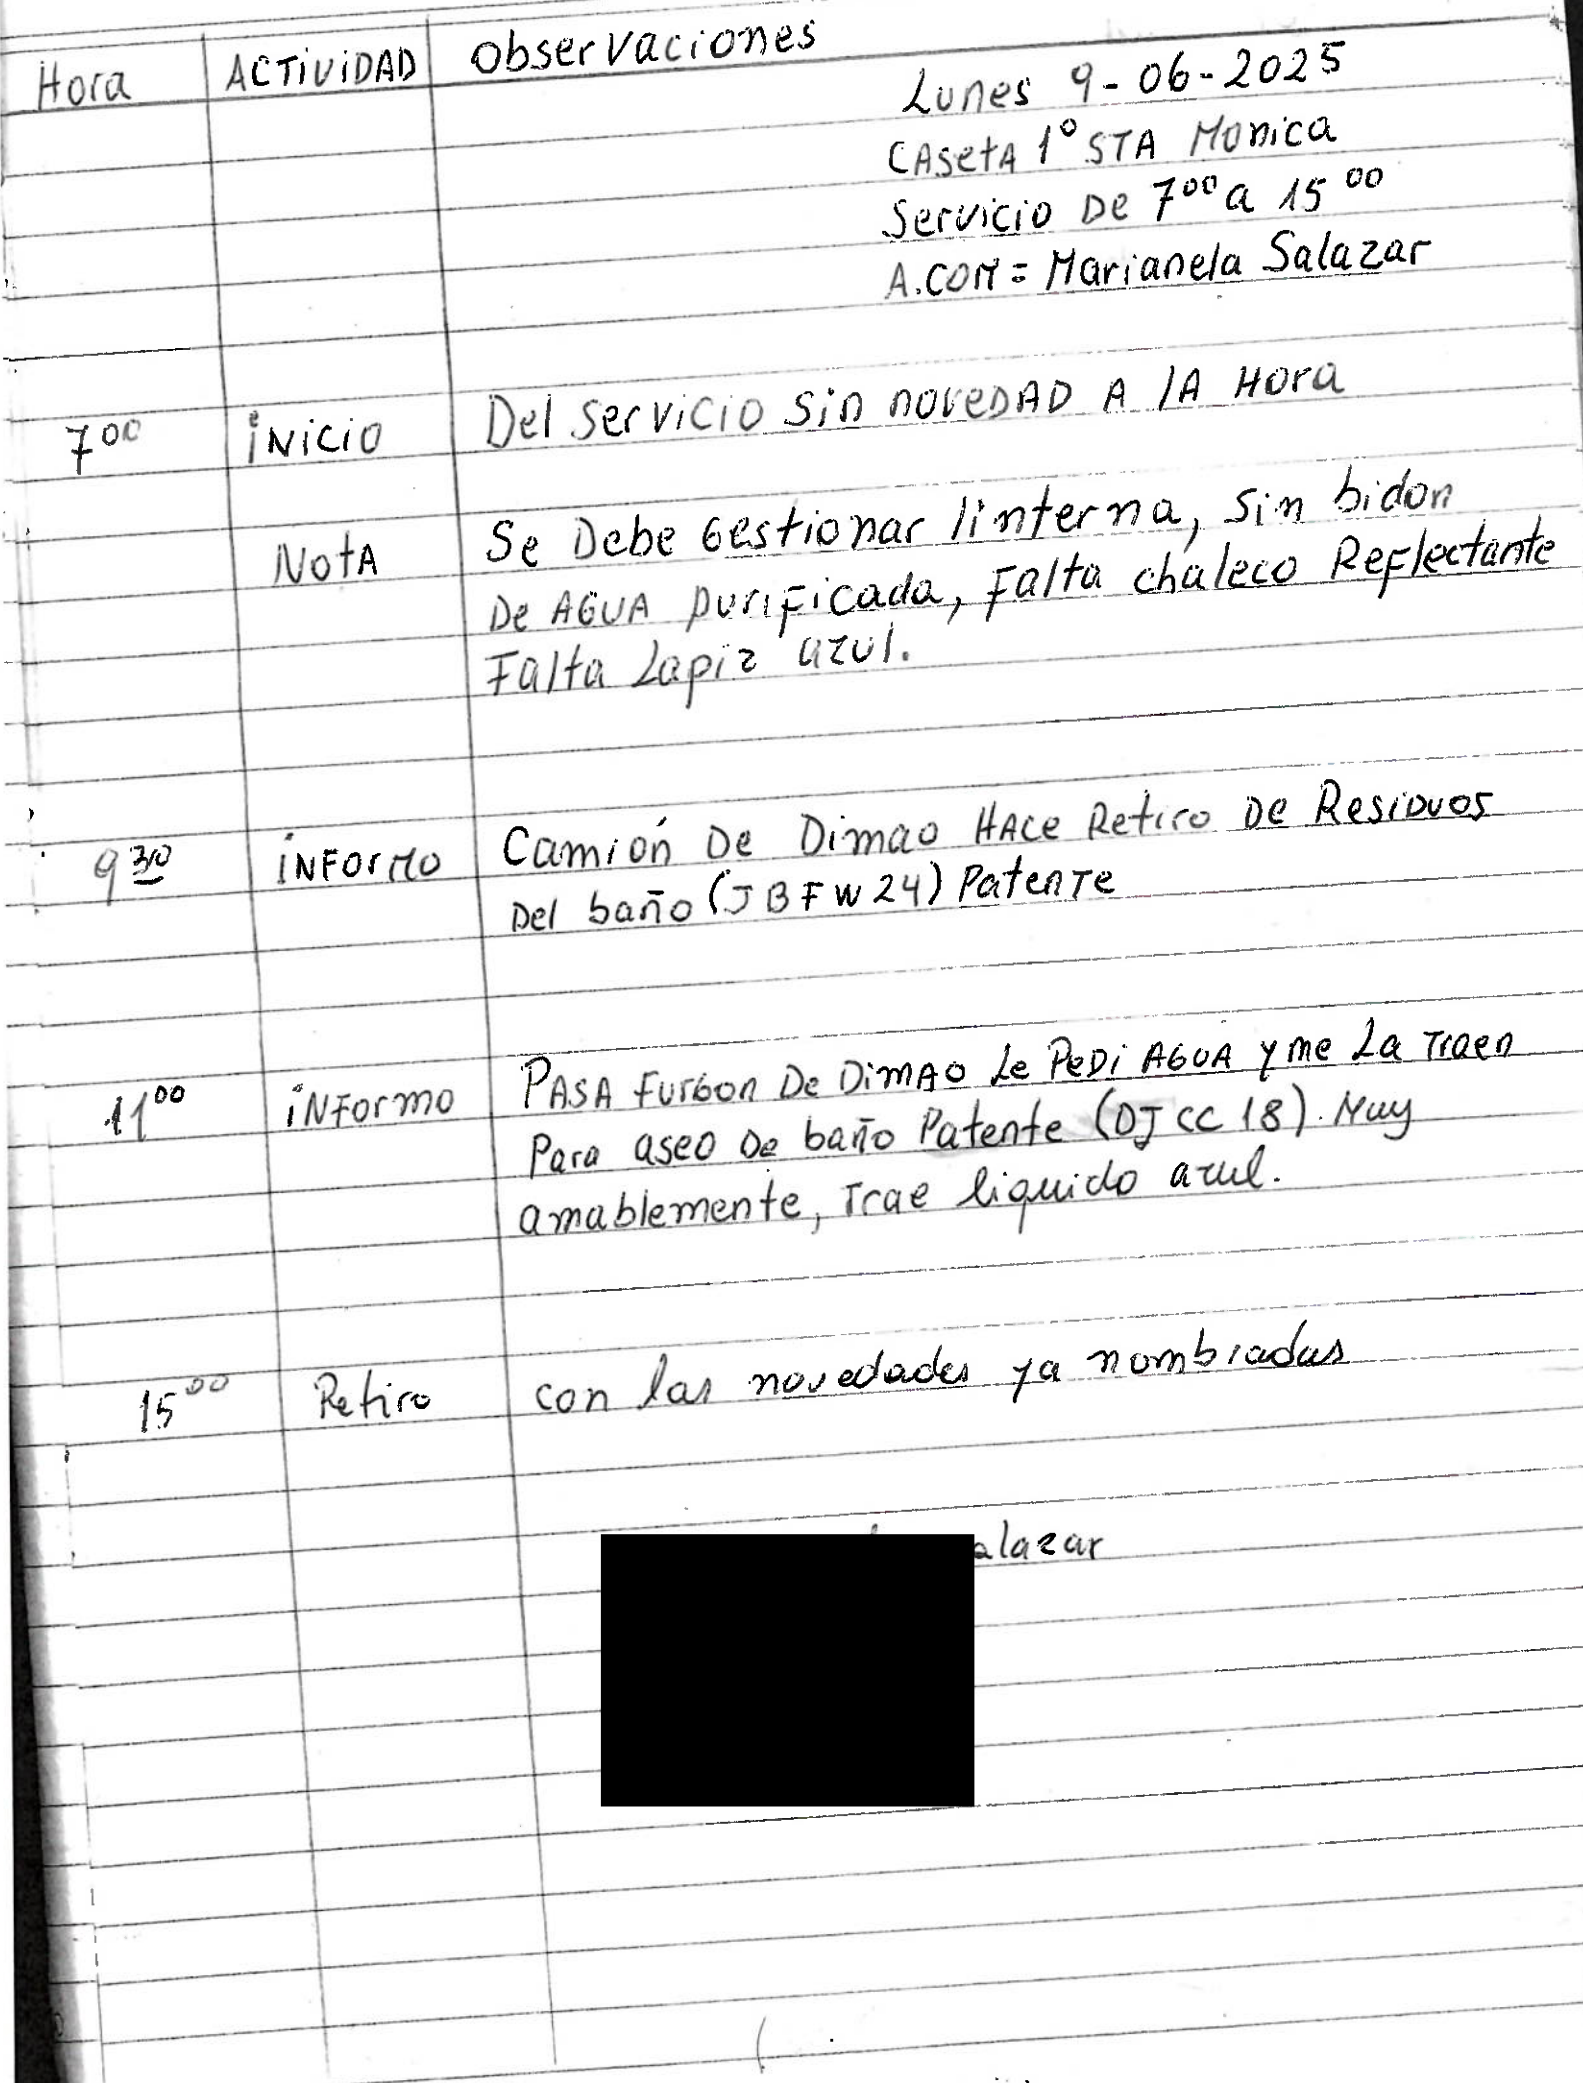 Hora ACTIVIDAD Observaciones
Lunes 9-06-2025
CAsetA 1° STA Monica
Servicio De 7⁰⁰ a 15⁰⁰
A.COM = Marianela Salazar
7⁰⁰ iNicio Del Servicio Sin noveDAD A lA Hora
NotA Se Debe Gestionar linterna, Sin bidon
De AGUA purificada, Falta chaleco Reflectante
Falta Lapiz azul.
9³⁰ iNForMo Camión De Dimao HAce Retiro De ResiDuos
Del baño (JBFW24) Patente
11⁰⁰ iNFormo PASA Furgon De DimAo Le PeDi AGUA y me La Traen
Para aseo De baño Patente (DJCC18). Muy
amablemente, Trae liquido azul.
15⁰⁰ Retiro con las novedades ya nombradas
alazar